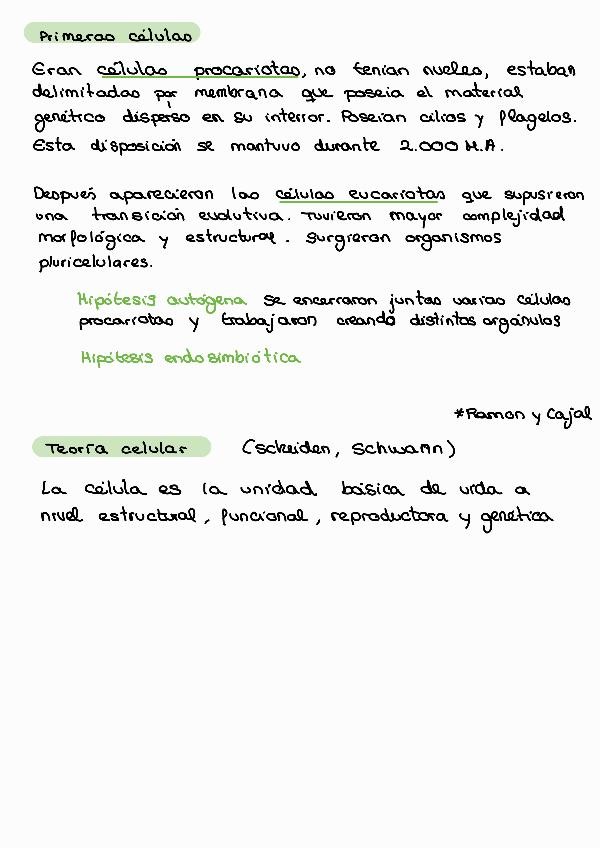 Primeras células
Eran células procariotas, no tenían nucleo, estaban
delimitadas por membrana que poseía el material
genético disperso en su interior. Poseían cilios y flagelos.
Esta disposición se mantuvo durante 2.000 M.A.
Después aparecieron las células eucariotas que supusieron
una transición evolutiva. Tuvieron mayor complejidad
morfológica y estructural. Surgieron organismos
pluricelulares.
Hipótesis autógena se encerraron juntas varias células
procariotas y trabajaron creando distintos orgánulos
Hipótesis endosimbiótica
*Ramon y Cajal
Teoría celular (Sckeiden, Schwann)
La célula es la unidad básica de vida a
nivel estructural, funcional, reproductora y genética